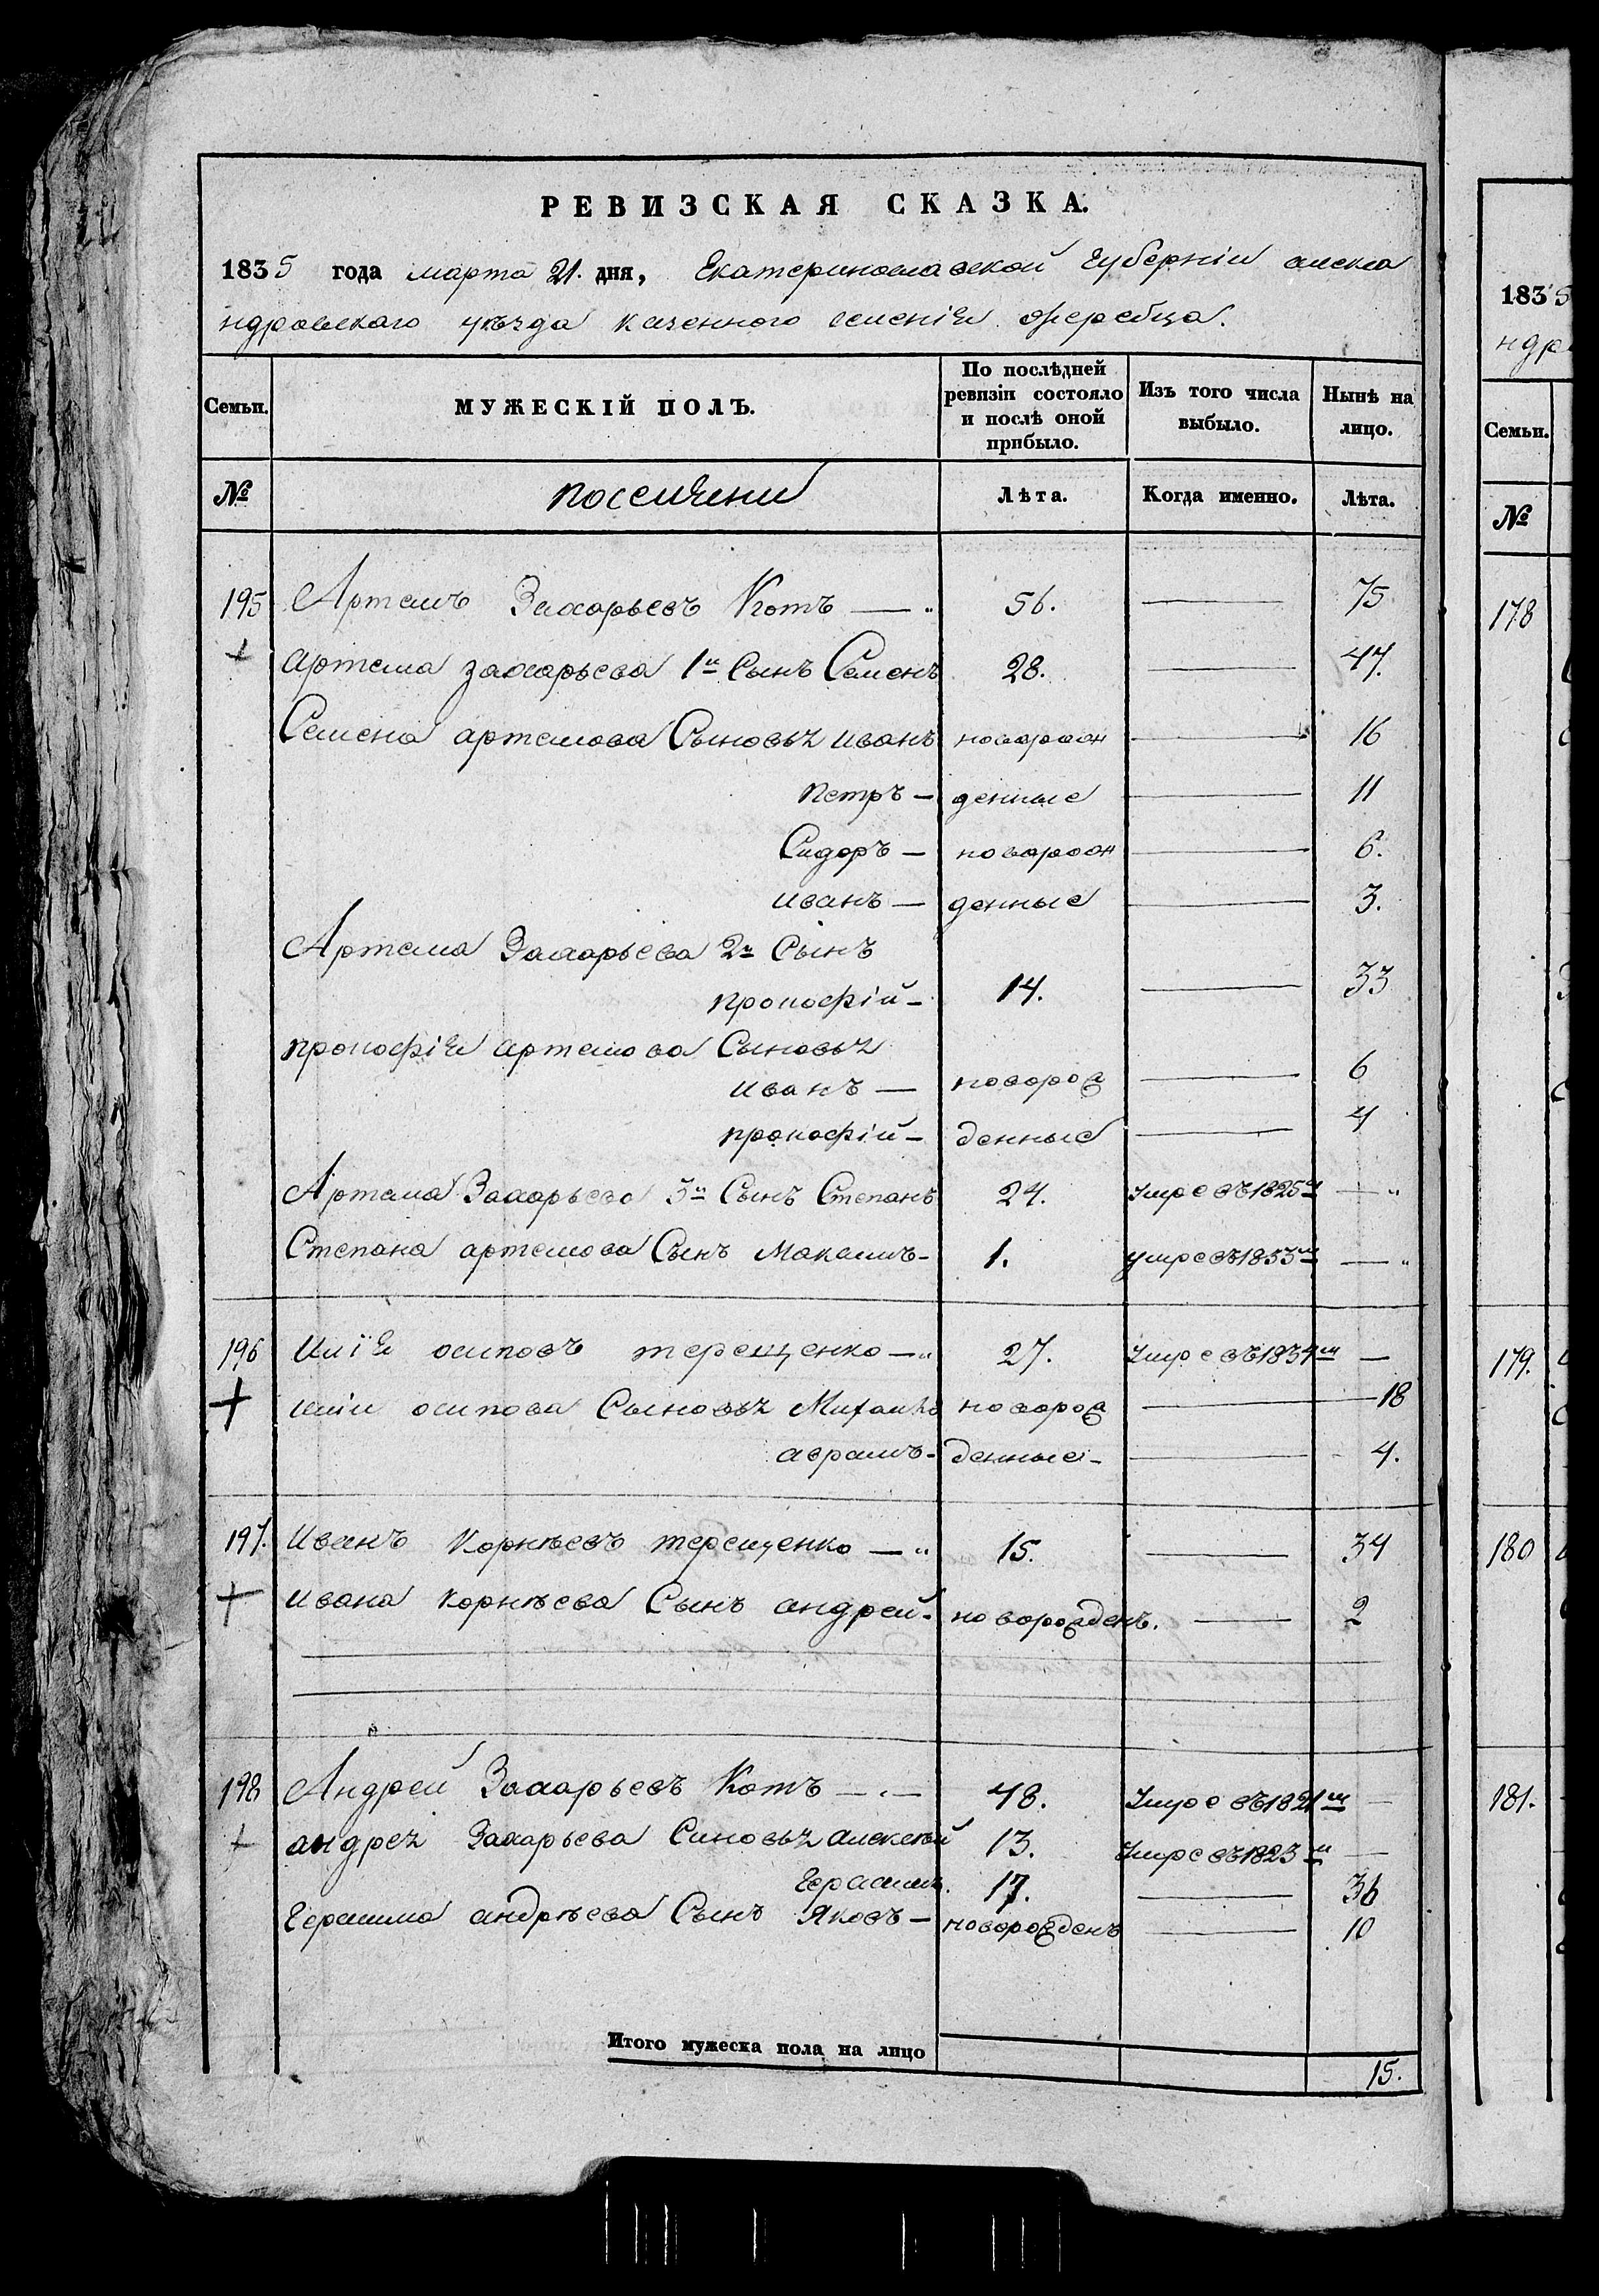 РЕВИЗСКАЯ СКАЗКА.
1835 года марта 21. дня, Екатеринославской Губерніи алекса
ндровскаго уѣзда казенного селенія жеребца.
Семьи. МУЖЕСКІЙ ПОЛЪ. По послѣдней ревизіи состояло и послѣ оной прибыло. Изъ того числа выбыло. Нынѣ на лицо.
№ поселяне Лѣта. Когда именно. Лѣта.
195 Артемъ Захарьевъ Котъ — 56. — 75
Артема захарьева 1й Сынъ Семенъ 28. — 47.
Семена артемова Сыновья иванъ новорож — 16
петръ — денные — 11
Сидоръ — новорож — 6.
иванъ — денные — 3.
Артема Захарьева 2й Сынъ
прокофій — 14. — 33
прокофія артемова Сыновья
иванъ — новорож — 6
прокофій — денные — 4
Артема Захарьева 3й Сынъ Степанъ 24. Умре въ 1825м —
Степана артемова Сынъ Макаимъ — 1. умре въ 1833м —
196 Илія осиповъ терещенко — 27. Умре въ 1834м —
иліи осипова Сыновья Михаило новорож — 18
аврамъ — денные — 4.
197. Иванъ Корнѣевъ терещенко — 15. — 34
ивана корнѣева Сынъ андрей — новорожденъ. — 2
198 Андрей Захарьевъ Котъ — 48. Умре въ 1821м —
андрея Захарьева Синовья алексѣй 13. Умре въ 1823м —
Герасимъ. 17. — 36
Герасима андрѣева Сынъ Яковъ — новорожденъ — 10
Итого мужеска пола на лицо 15.
183 5
ндро
Семьи.
№
178
179.
180
181.